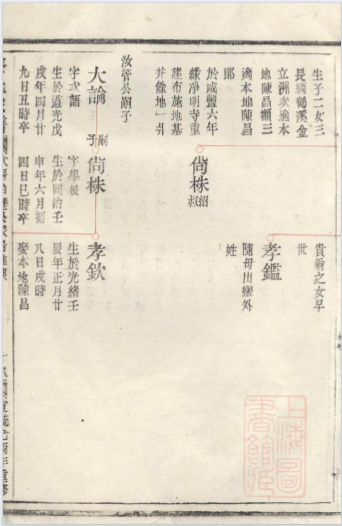 生子二女三
長適鶴溪金
立洲次適本
地陳昌顯三
適本地陳昌
郎
於咸豐六年
緣淨明寺重
建布施地基
并餘地一引
尙株
紹
叔
貴齋之女早
世
孝鑑
隨母出繼外
姓
汝管公嗣子
大論
字次語
生於道光戊
戌年四月廿
九日丑時卒
嗣
子
尙株
字學根
生於同治壬
申年六月初
四日巳時卒
孝欽
生於光緒壬
辰年正月廿
八日戌時
娶本地陳昌
上海圖
書館藏